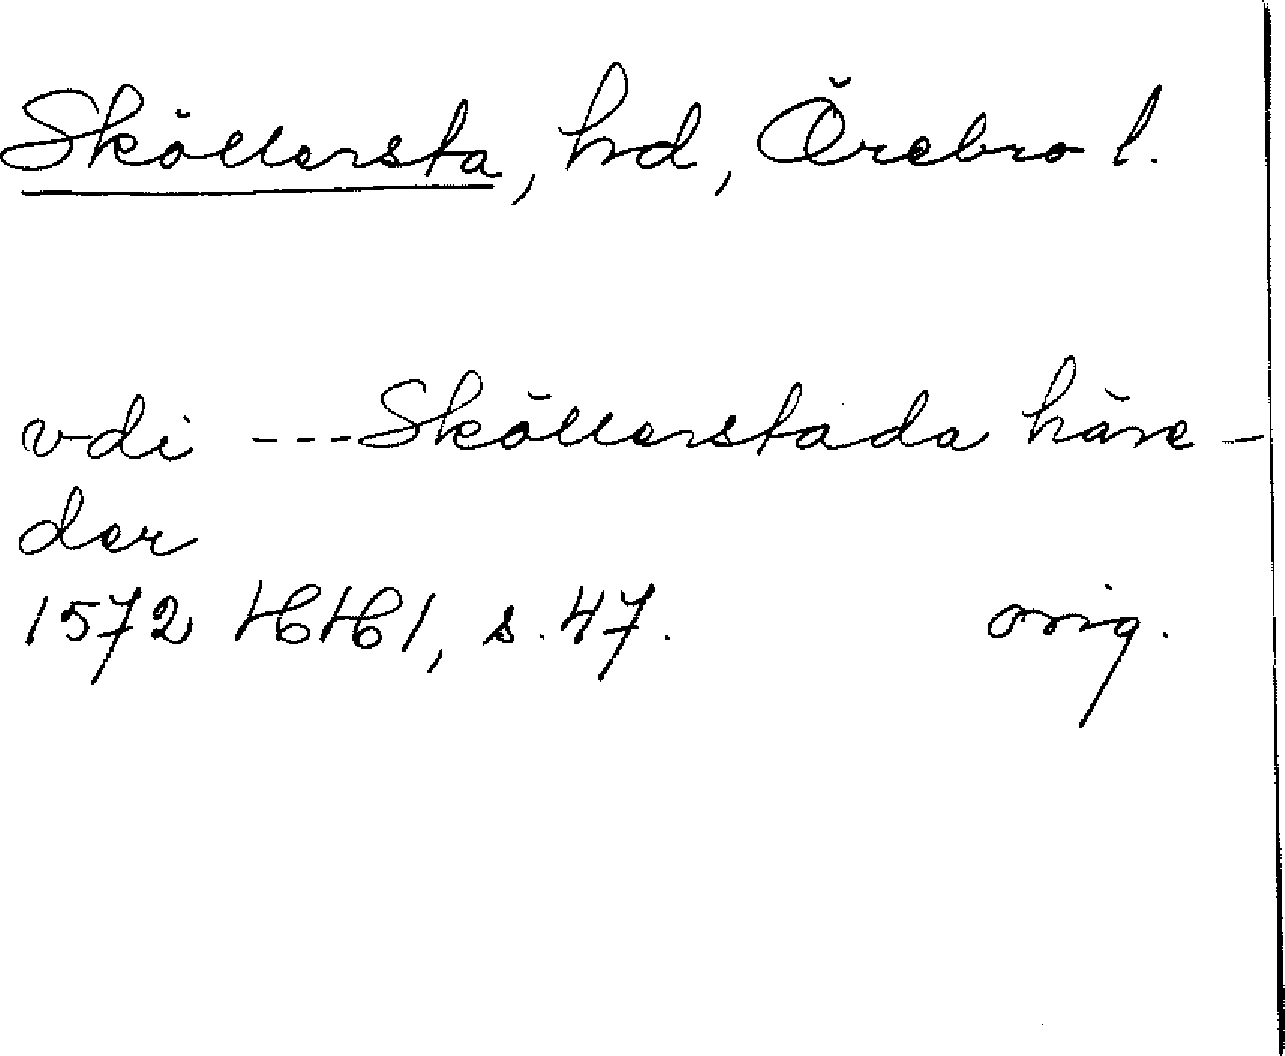 Sköllersta, hd, Örebro l.
vdi --- Sköllerstada häre-
der
1572 HH1, s. 47. orig.